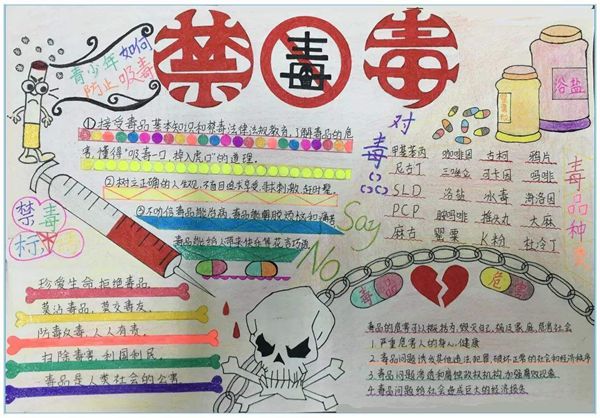 禁毒
毒
青少年如何
防止吸毒
①接受毒品基本知识和禁毒法律法规教育,了解毒品的危
害,懂得"吸毒一口,掉入虎口"的道理.
②树立正确的人生观,不盲目追求享受,寻求刺激,赶时髦.
③不听信毒品能治病,毒品能解脱烦恼和痛苦
毒品能给人带来快乐等花言巧语
对
毒品
Say
No
浴盐
甲基苯丙 咖啡因 古柯 鸦片
尼古丁 三唑仑 可卡因 吗啡
SLD 浴盐 冰毒 海洛因
PCP 摇头丸 大麻
麻古 罂粟 K粉 杜冷丁
毒品种类
禁毒
珍爱生命,拒绝毒品.
莫沾毒品,莫交毒友.
防毒反毒,人人有责.
扫除毒害,利国利民.
毒品是人类社会的公害
毒品 危害
1.严重危害人的身心健康
2.毒品问题诱发其他违法犯罪,破坏正常的社会和经济秩序
3.毒品问题渗透和腐蚀政权机构,加强腐败现象
4.毒品问题给社会造成巨大的经济损失